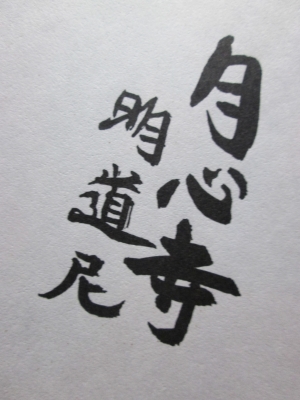 月心寺
明道尼